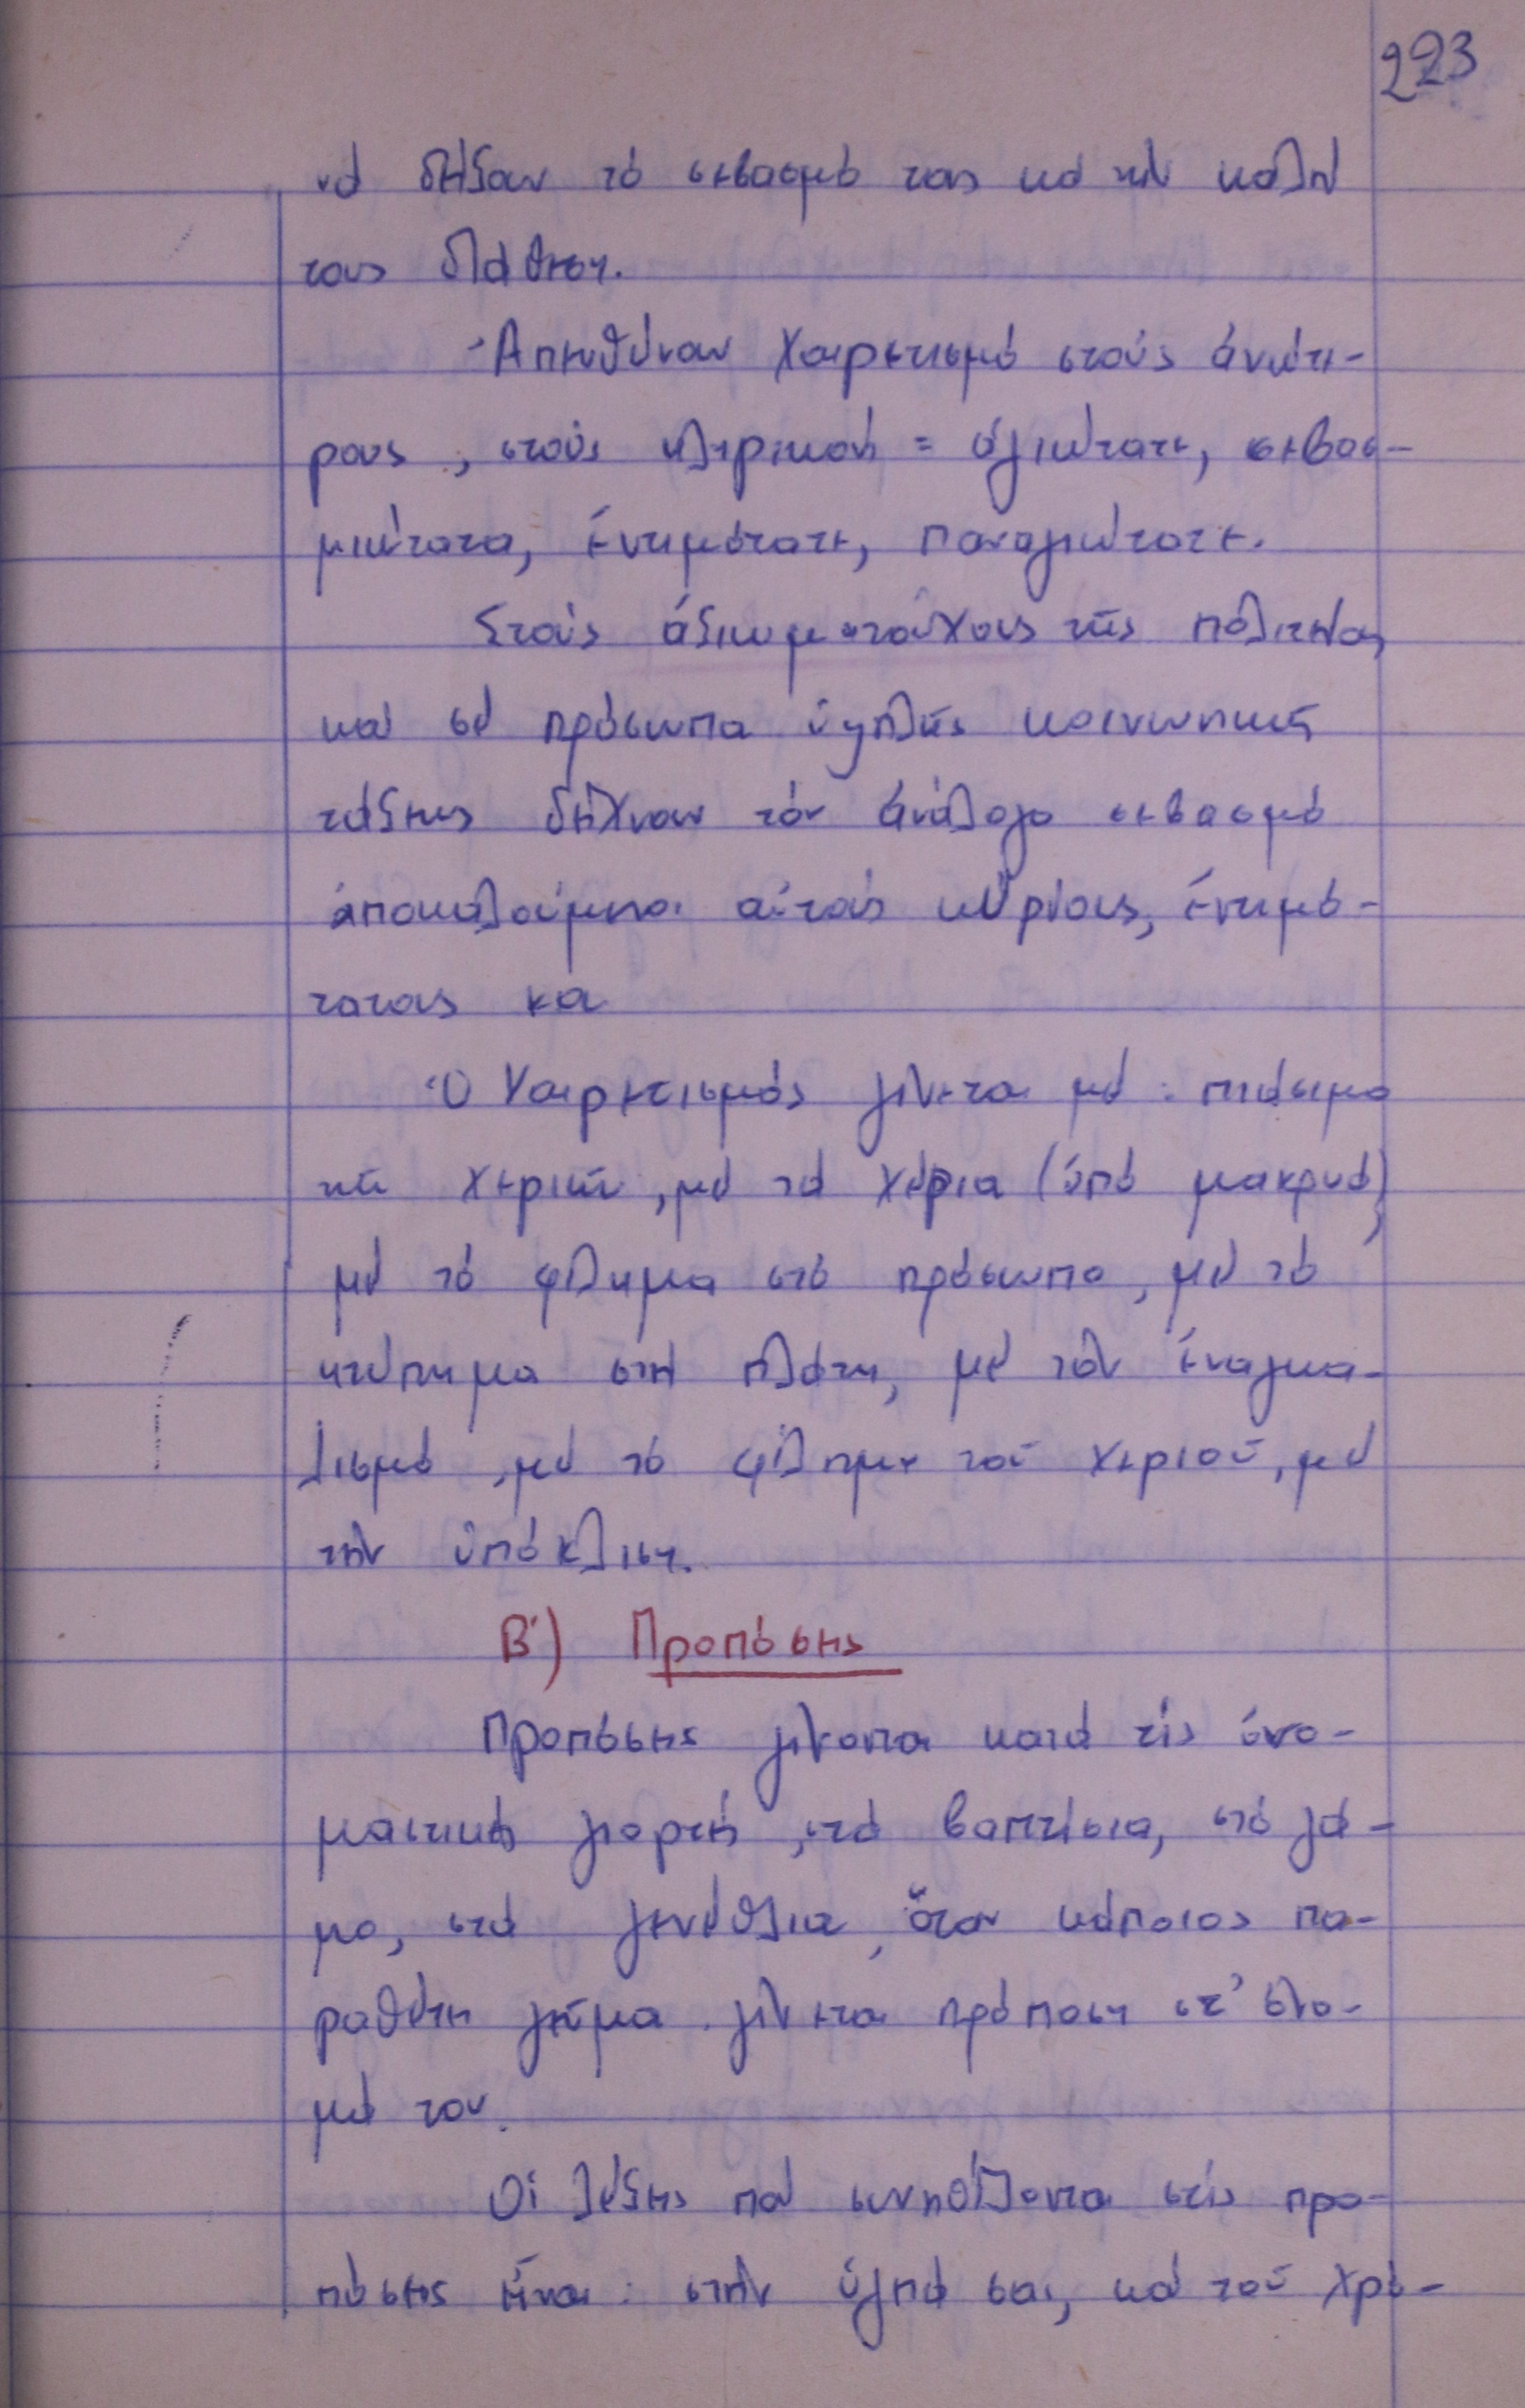 223
νά δείξουν τό σεβασμό τους καί τήν καλή
τους διάθεση.
Ἀπευθύνουν χαιρετισμό στούς ἀνώτε-
ρους, στούς κληρικούς = ἁγιώτατε, σεβασ-
μιώτατε, ἐντιμότατε, παναγιώτατε.
Στούς ἀξιωματούχους τῆς πολιτείας
καί σέ πρόσωπα ὑψηλῆς κοινωνικῆς
τάξεως δείχνουν τόν ἀνάλογο σεβασμό
ἀποκαλούμενοι αὐτούς κυρίους, ἐντιμό-
τατους κα
Ὁ χαιρετισμός γίνεται μέ: πιάσιμο
τῶν χεριῶν, μέ τά χέρια (ἀπό μακρυά)
μέ τό φίλημα στό πρόσωπο, μέ τό
κτύπημα στή πλάτη, μέ τόν ἐναγκα-
λισμό, μέ τό φίλημα τοῦ χεριοῦ, μέ
τήν ὑπόκλιση.
Β') Προπόσεις
Προπόσεις γίνονται κατά τίς ὀνο-
μαστικές γιορτές, στά βαπτίσια, στό γά-
μο, στά γενέθλια, ὅταν κάποιος πα-
ραθέτει γεῦμα γίνεται πρόποση στ' ὄνο-
μά του.
Οἱ λέξεις πού συνηθίζονται στίς προ-
πόσεις εἶναι: στήν ὑγειά σας, καί τοῦ χρό-